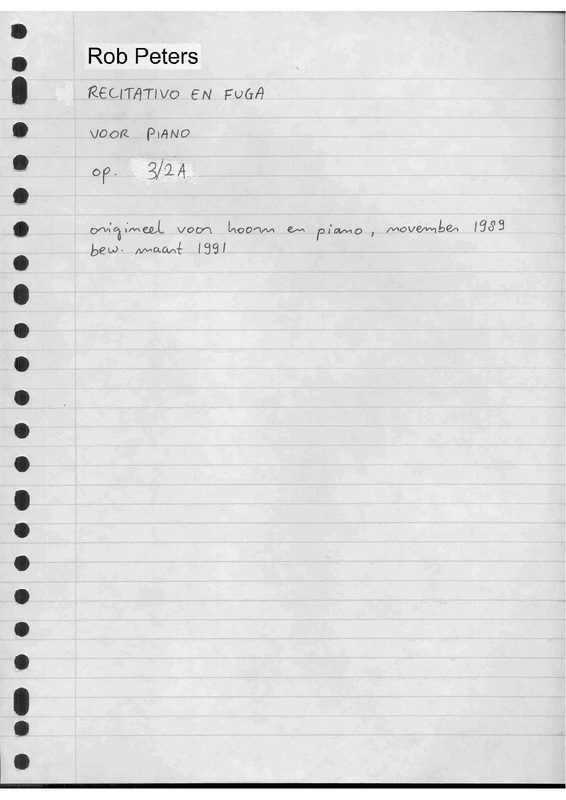 Rob Peters
RECITATIVO EN FUGA
VOOR PIANO
op. 3/2A
origineel voor hoorn en piano, november 1989
bew. maart 1991